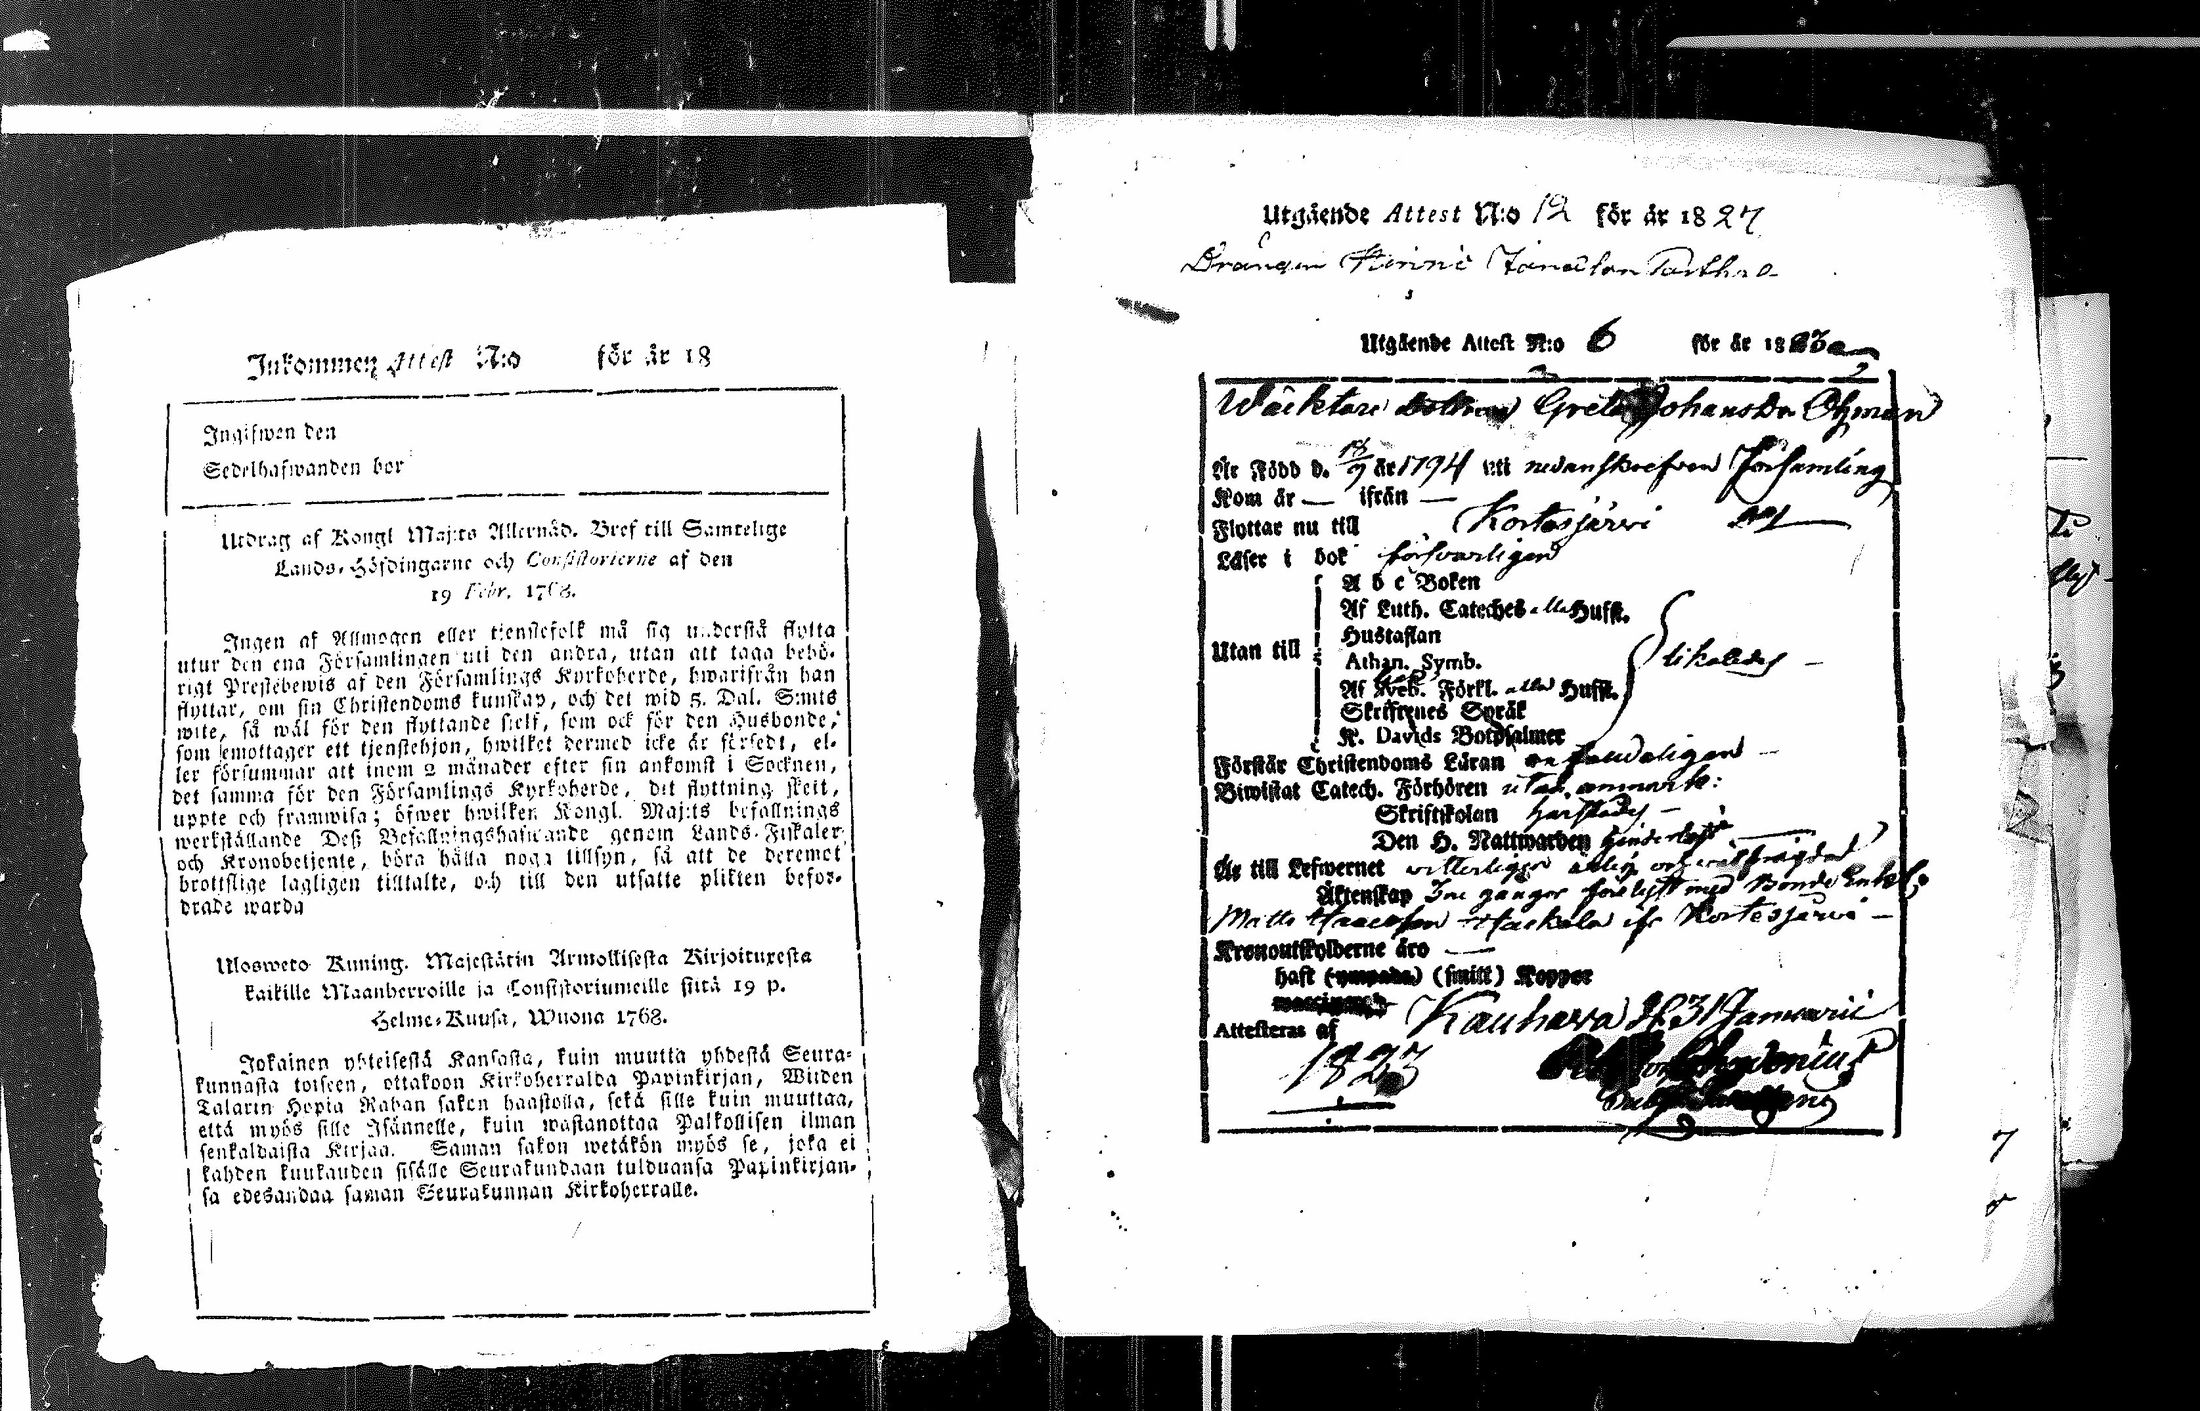 Inkommen Attest N:o för år 18
Ingifwen den
Sedelhafwanden bor
Utdrag af Kongl Maj:ts Allernåd. Bref till Samtelige
Lands-Höfdingarne och Consistorierne af den
19 Febr. 1768.
Ingen af Allmogen eller tjenstefolk må sig understå flytta
utur den ena Församlingen uti den andra, utan att taga behö-
rigt Prestebewis af den Församlings Kyrkoherde, hwarifrån han
flyttar, om sin Christendoms kunskap, och det wid 5. Dal. S:mts
wite, så wäl för den flyttande sielf, som ock för den Husbonde,
som emottager ett tjenstehjon, hwilket dermed icke är försedt, el-
ler försummar att inom 2 månader efter sin ankomst i Socknen,
det samma för den Församlings Kyrkoherde, dit flyttning skeit,
uppte och framwisa; öfwer hwilken Kongl. Maj:ts befallnings
werkställande Deß Befallningshafwande genom Lands-Fiskaler
och Kronobetjente, böra hålla noga tillsyn, så att de deremot
brottslige lagligen tilltalte, och till den utsatte plikten befor-
drade warda
Ulosweto Kuning. Majestätin Armollisesta Kirjoituxesta
kaikille Maanherroille ja Consistoriumeille siitä 19 p.
Helme-Kuusa, Wuona 1768.
Jokainen yhteisestä Kansasta, kuin muutta yhdestä Seura-
kunnasta toiseen, ottakoon Kirkoherralda Papinkirjan, Wiiden
Talarin Hopia Rahan sakon haastolla, sekä sille kuin muuttaa,
että myös sille Isännelle, kuin wastanottaa Palkollisen ilman
senkaldaista Kirjaa. Saman sakon wetäkön myös se, joka ei
kahden kuukauden sisälle Seurakundaan tulduansa Papinkirjan-
sa edesandaa saman Seurakunnan Kirkoherralle.
Utgående Attest N:o 12 för år 1827
Drängen
Utgående Attest N:o 6 för år 1823
Wäcktare Greta Johansdr Öhman
Är Född d. 18/9 år 1794 uti nedanskrefwen Församling
Kom år — ifrån —
Flyttar nu till Kortesjärwi
Läser i bok försvarligen
A b c Boken
Af Luth. Cateches alla Hufst.
Hustaflan
Utan till
Athan. Symb.
likaledes —
Af Sveb. Förkl. alla Hufst.
Skriftenes Språk
K. Davids Botpsalmer
Förstår Christendoms Läran —
Biwistat Catech. Förhören utan anmärk:
Skriftskolan
Den H. Nattwarden
Är till Lefwernet witterligen ärlig och
Äktenskap Tre gånger förelyst med Bonde Enkel:
Matts Hackala ifr Kortesjärwi —
Kronoutskylderne äro —
haft (smitt) Koppor
Attesteras af Kauhava d. 31 Januarii
1823